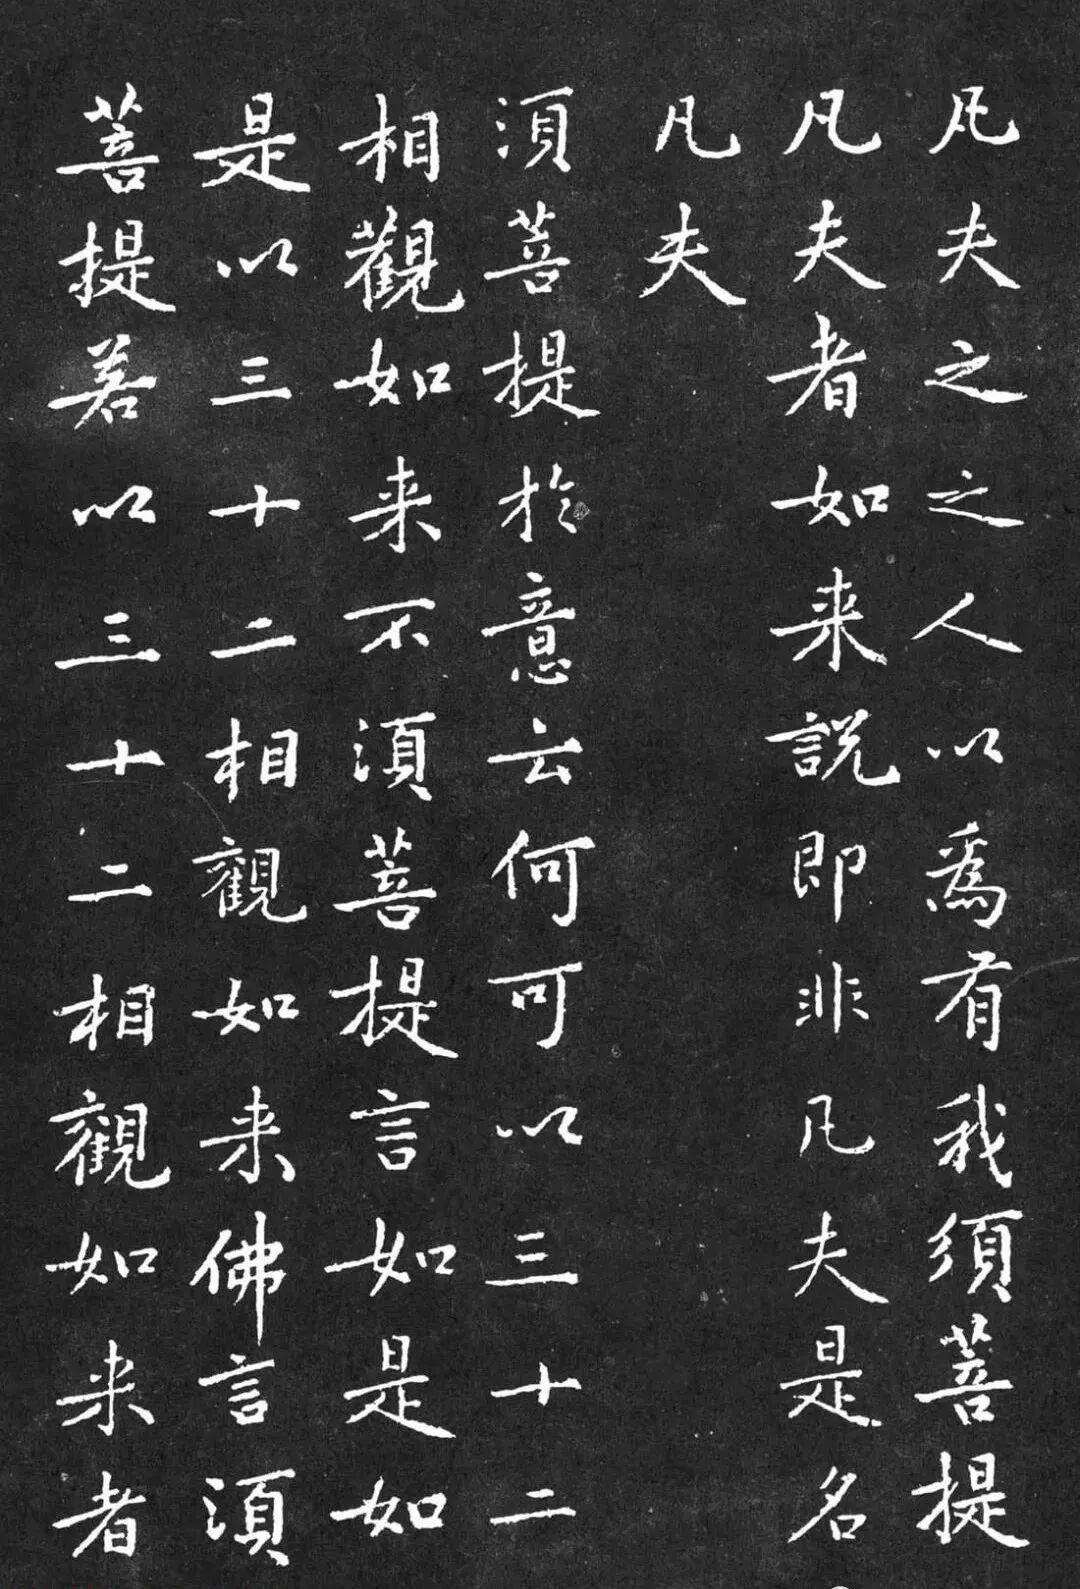 凡夫之之人以為有我須菩提
凡夫者如来説即非凡夫是名
凡夫
湏菩提扵意云何可以三十二
相觀如来不湏菩提言如是如
是以三十二相觀如来佛言湏
菩提若以三十二相觀如来者